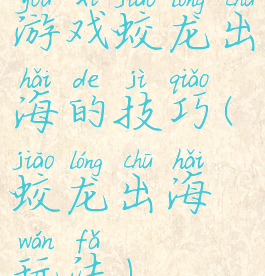 yóu xì jiāo lóng chū
游戏蛟龙出
hǎi de jì qiǎo
海的技巧(
jiāo lóng chū hǎi
蛟龙出海
wán fǎ
玩法)